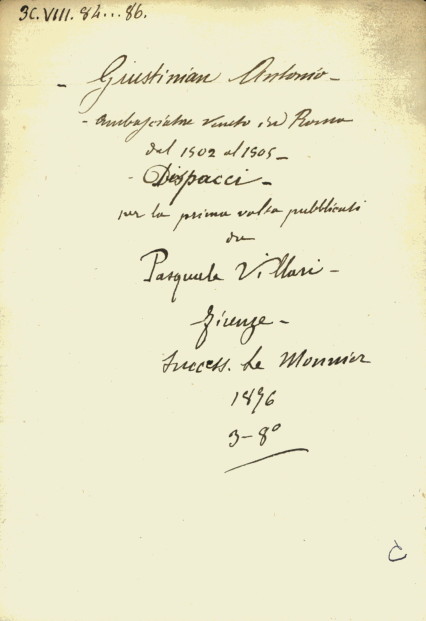 3C. VIII. 84...86.
- Giustinian Antonio -
- Ambasciatore Veneto in Roma
dal 1502 al 1505 -
- Dispacci -
per la prima volta pubblicati
da
Pasquale Villari -
Firenze -
Success. Le Monnier
1876
3-8º
C